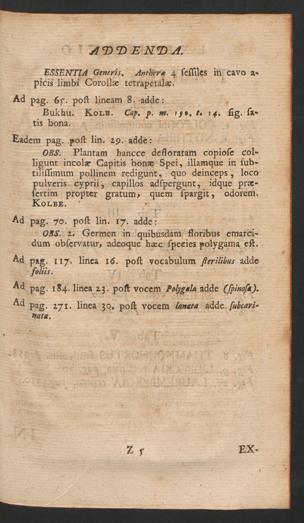 ADDENDA.
ESSENTIA Generis. Antheræ 4 ſeſſiles in cavo a-
picis limbi Corollæ tetrapetalæ.
Ad pag. 65. poſt lineam 8. adde:
Bukhu. KOLB. Cap. p. m. 190. t. 14. fig. ſa-
tis bona.
Eadem pag. poſt lin. 29. adde:
OBS. Plantam hancce defloratam copioſe col-
ligunt incolæ Capitis bonæ Spei, illamque in ſub-
tiliſſimum pollinem redigunt, quo deinceps, loco
pulveris cyprii, capillos adſpergunt, idque præ-
ſertim propter gratum, quem ſpargit, odorem.
KOLBE.
Ad pag. 70. poſt lin. 17. adde:
OBS. 2. Germen in quibusdam floribus emarci-
dum obſervatur, adeoque hæc ſpecies polygama eſt.
Ad pag. 117. linea 16. poſt vocabulum ſterilibus adde
foliis.
Ad pag. 184. linea 23. poſt vocem Polygala adde (ſpinoſa).
Ad pag. 271. linea 30. poſt vocem lanata adde ſubcari-
nata.
Z 5 EX-